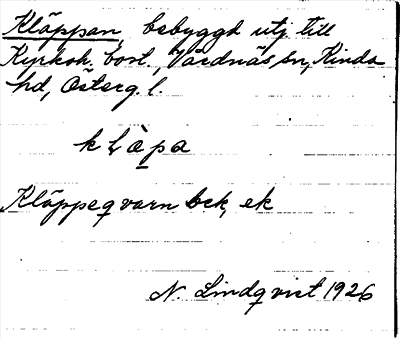 Kläppan, bebyggd utj. till
Kyrkoh. bost., Vårdnäs sn, Kinda
hd, Österg. l.
klàpa
Kläppeqvarn bek, ek
N. Lindqvist 1926